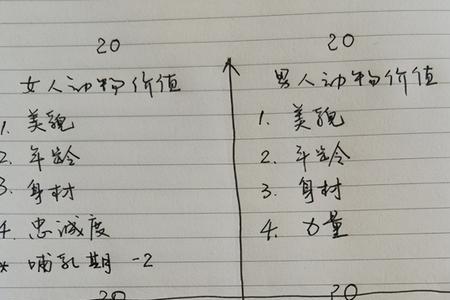 20
女人动物价值
1. 美貌
2. 年龄
3. 身材
4. 忠诚度
* 哺乳期 -2
20
20
男人动物价值
1. 美貌
2. 年龄
3. 身材
4. 力量
20